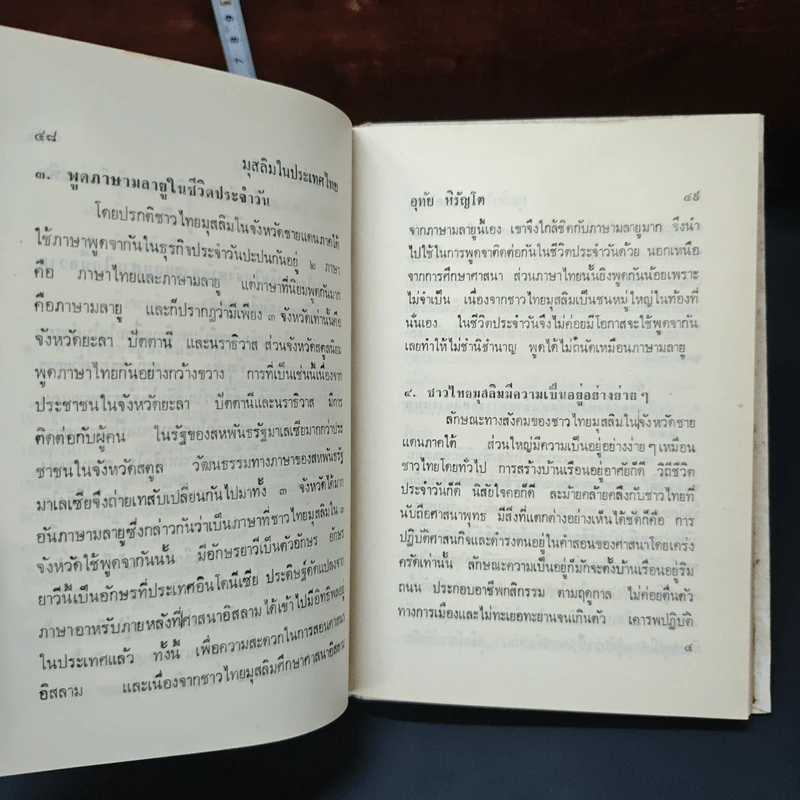 ๔๘
มุสลิมในประเทศไทย
๓. พูดภาษามลายูในชีวิตประจำวัน
โดยปรกติชาวไทยมุสลิมในจังหวัดชายแดนภาคใต้
ใช้ภาษาพูดจากันในธุรกิจประจำวันปะปนกันอยู่ ๒ ภาษา
คือ ภาษาไทยและภาษามลายู แต่ภาษาที่นิยมพูดกันมาก
คือภาษามลายู และก็ปรากฏว่ามีเพียง ๓ จังหวัดเท่านั้นคือ
จังหวัดยะลา ปัตตานี และนราธิวาส ส่วนจังหวัดสตูลนิยม
พูดภาษาไทยกันอย่างกว้างขวาง การที่เป็นเช่นนี้เนื่องจาก
ประชาชนในจังหวัดยะลา ปัตตานีและนราธิวาส มีการ
ติดต่อกับผู้คน ในรัฐของสหพันธรัฐมาเลเซียมากกว่าประ
ชาชนในจังหวัดสตูล วัฒนธรรมทางภาษาของสหพันธรัฐ
มาเลเซียจึงถ่ายเทสับเปลี่ยนกันไปมาทั้ง ๓ จังหวัดได้มาก
อันภาษามลายูซึ่งกล่าวกันว่าเป็นภาษาที่ชาวไทยมุสลิมใน ๓
จังหวัดใช้พูดจากันนั้น มีอักษรยาวีเป็นตัวอักษร อักษร
ยาวีนี้เป็นอักษรที่ประเทศอินโดนีเซีย ประดิษฐ์ดัดแปลงจาก
ภาษาอาหรับภายหลังที่ศาสนาอิสลามได้เข้าไปมีอิทธิพลอยู่
ในประเทศแล้ว ทั้งนี้ เพื่อความสะดวกในการสอนศาสนา
อิสลาม และเนื่องจากชาวไทยมุสลิมศึกษาศาสนาอิสลาม
อุทัย หิรัญโต ๔๙
จากภาษามลายูนี้เอง เขาจึงใกล้ชิดกับภาษามลายูมาก จึงนำ
ไปใช้ในการพูดจาติดต่อกันในชีวิตประจำวันด้วย นอกเหนือ
จากการศึกษาศาสนา ส่วนภาษาไทยนั้นยิงพูดกันน้อยเพราะ
ไม่จำเป็น เนื่องจากชาวไทยมุสลิมเป็นชนหมู่ใหญ่ในท้องที่
นั่นเอง ในชีวิตประจำวันจึงไม่ค่อยมีโอกาสจะใช้พูดจากัน
เลยทำให้ไม่ชำนิชำนาญ พูดได้ไม่ถนัดเหมือนภาษามลายู
๔. ชาวไทยมุสลิมมีความเป็นอยู่อย่างง่าย ๆ
ลักษณะทางสังคมของชาวไทยมุสลิมในจังหวัดชาย
แดนภาคใต้ ส่วนใหญ่มีความเป็นอยู่อย่างง่าย ๆ เหมือน
ชาวไทยโดยทั่วไป การสร้างบ้านเรือนอยู่อาศัยก็ดี วิถีชีวิต
ประจำวันก็ดี นิสัยใจคอก็ดี ละม้ายคล้ายคลึงกับชาวไทยที่
นับถือศาสนาพุทธ มีสิ่งที่แตกต่างอย่างเห็นได้ชัดก็คือ การ
ปฏิบัติศาสนกิจและดำรงตนอยู่ในคำสอนของศาสนาโดยเคร่ง
ครัดเท่านั้น ลักษณะความเป็นอยู่ก็มักจะตั้งบ้านเรือนอยู่ริม
ถนน ประกอบอาชีพกสิกรรม ตามฤดูกาล ไม่ค่อยตื่นตัว
ทางการเมืองและไม่ทะเยอทะยานจนเกินตัว เคารพปฏิบัติ
๔
7 8 9